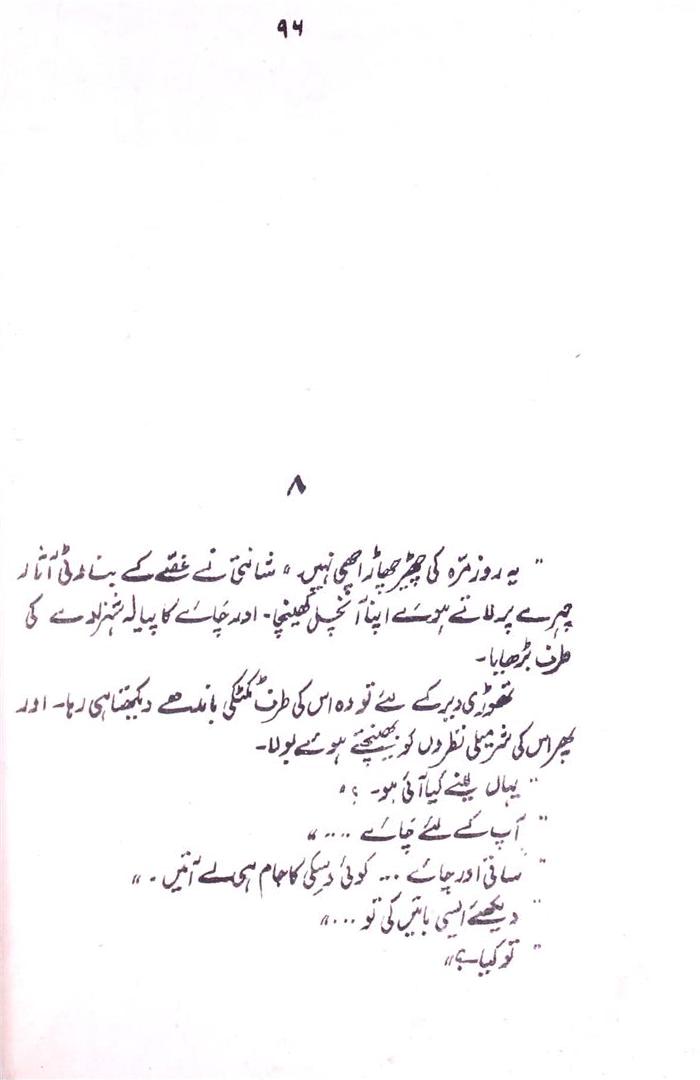 ۹۴
۸
" یہ روز مرّہ کی چھیڑ چھاڑ اچھی نہیں " شانتی نے غصّے کے بناوٹی آثار
چہرے پر لاتے ہوئے اپنا آنچل کھینچا۔ اور چائے کا پیالہ شہزادے کی
طرف بڑھایا۔
تھوڑی دیر کے لئے تو وہ اس کی طرف ٹکٹکی باندھے دیکھتا ہی رہا۔ اور
پھر اس کی شرمیلی نظروں کو بھینچتے ہوئے بولا۔
" یہاں لینے کیا آئی ہو۔ ؟ "
" آپ کے لئے چائے .... "
" ساقی اور چائے ... کوئی وسکی کا جام ہی لے آتیں ۔ "
" دیکھئے ایسی باتیں کی تو ... "
" تو کیا ۔؟ "